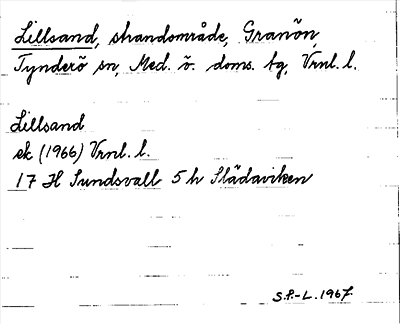 Lillsand, strandområde, Granön,
Tynderö sn, Med. ö. doms. tg, Vrnl. l.
Lillsand
ek (1966) Vrnl. l.
17 H Sundsvall 5 h Slädaviken
S.P.-L. 1967